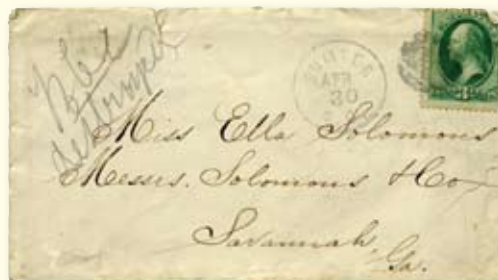 SUMTER
APR
30
Miss Ella Solomons
Messrs. Solomons & Co
Savannah,
Ga.